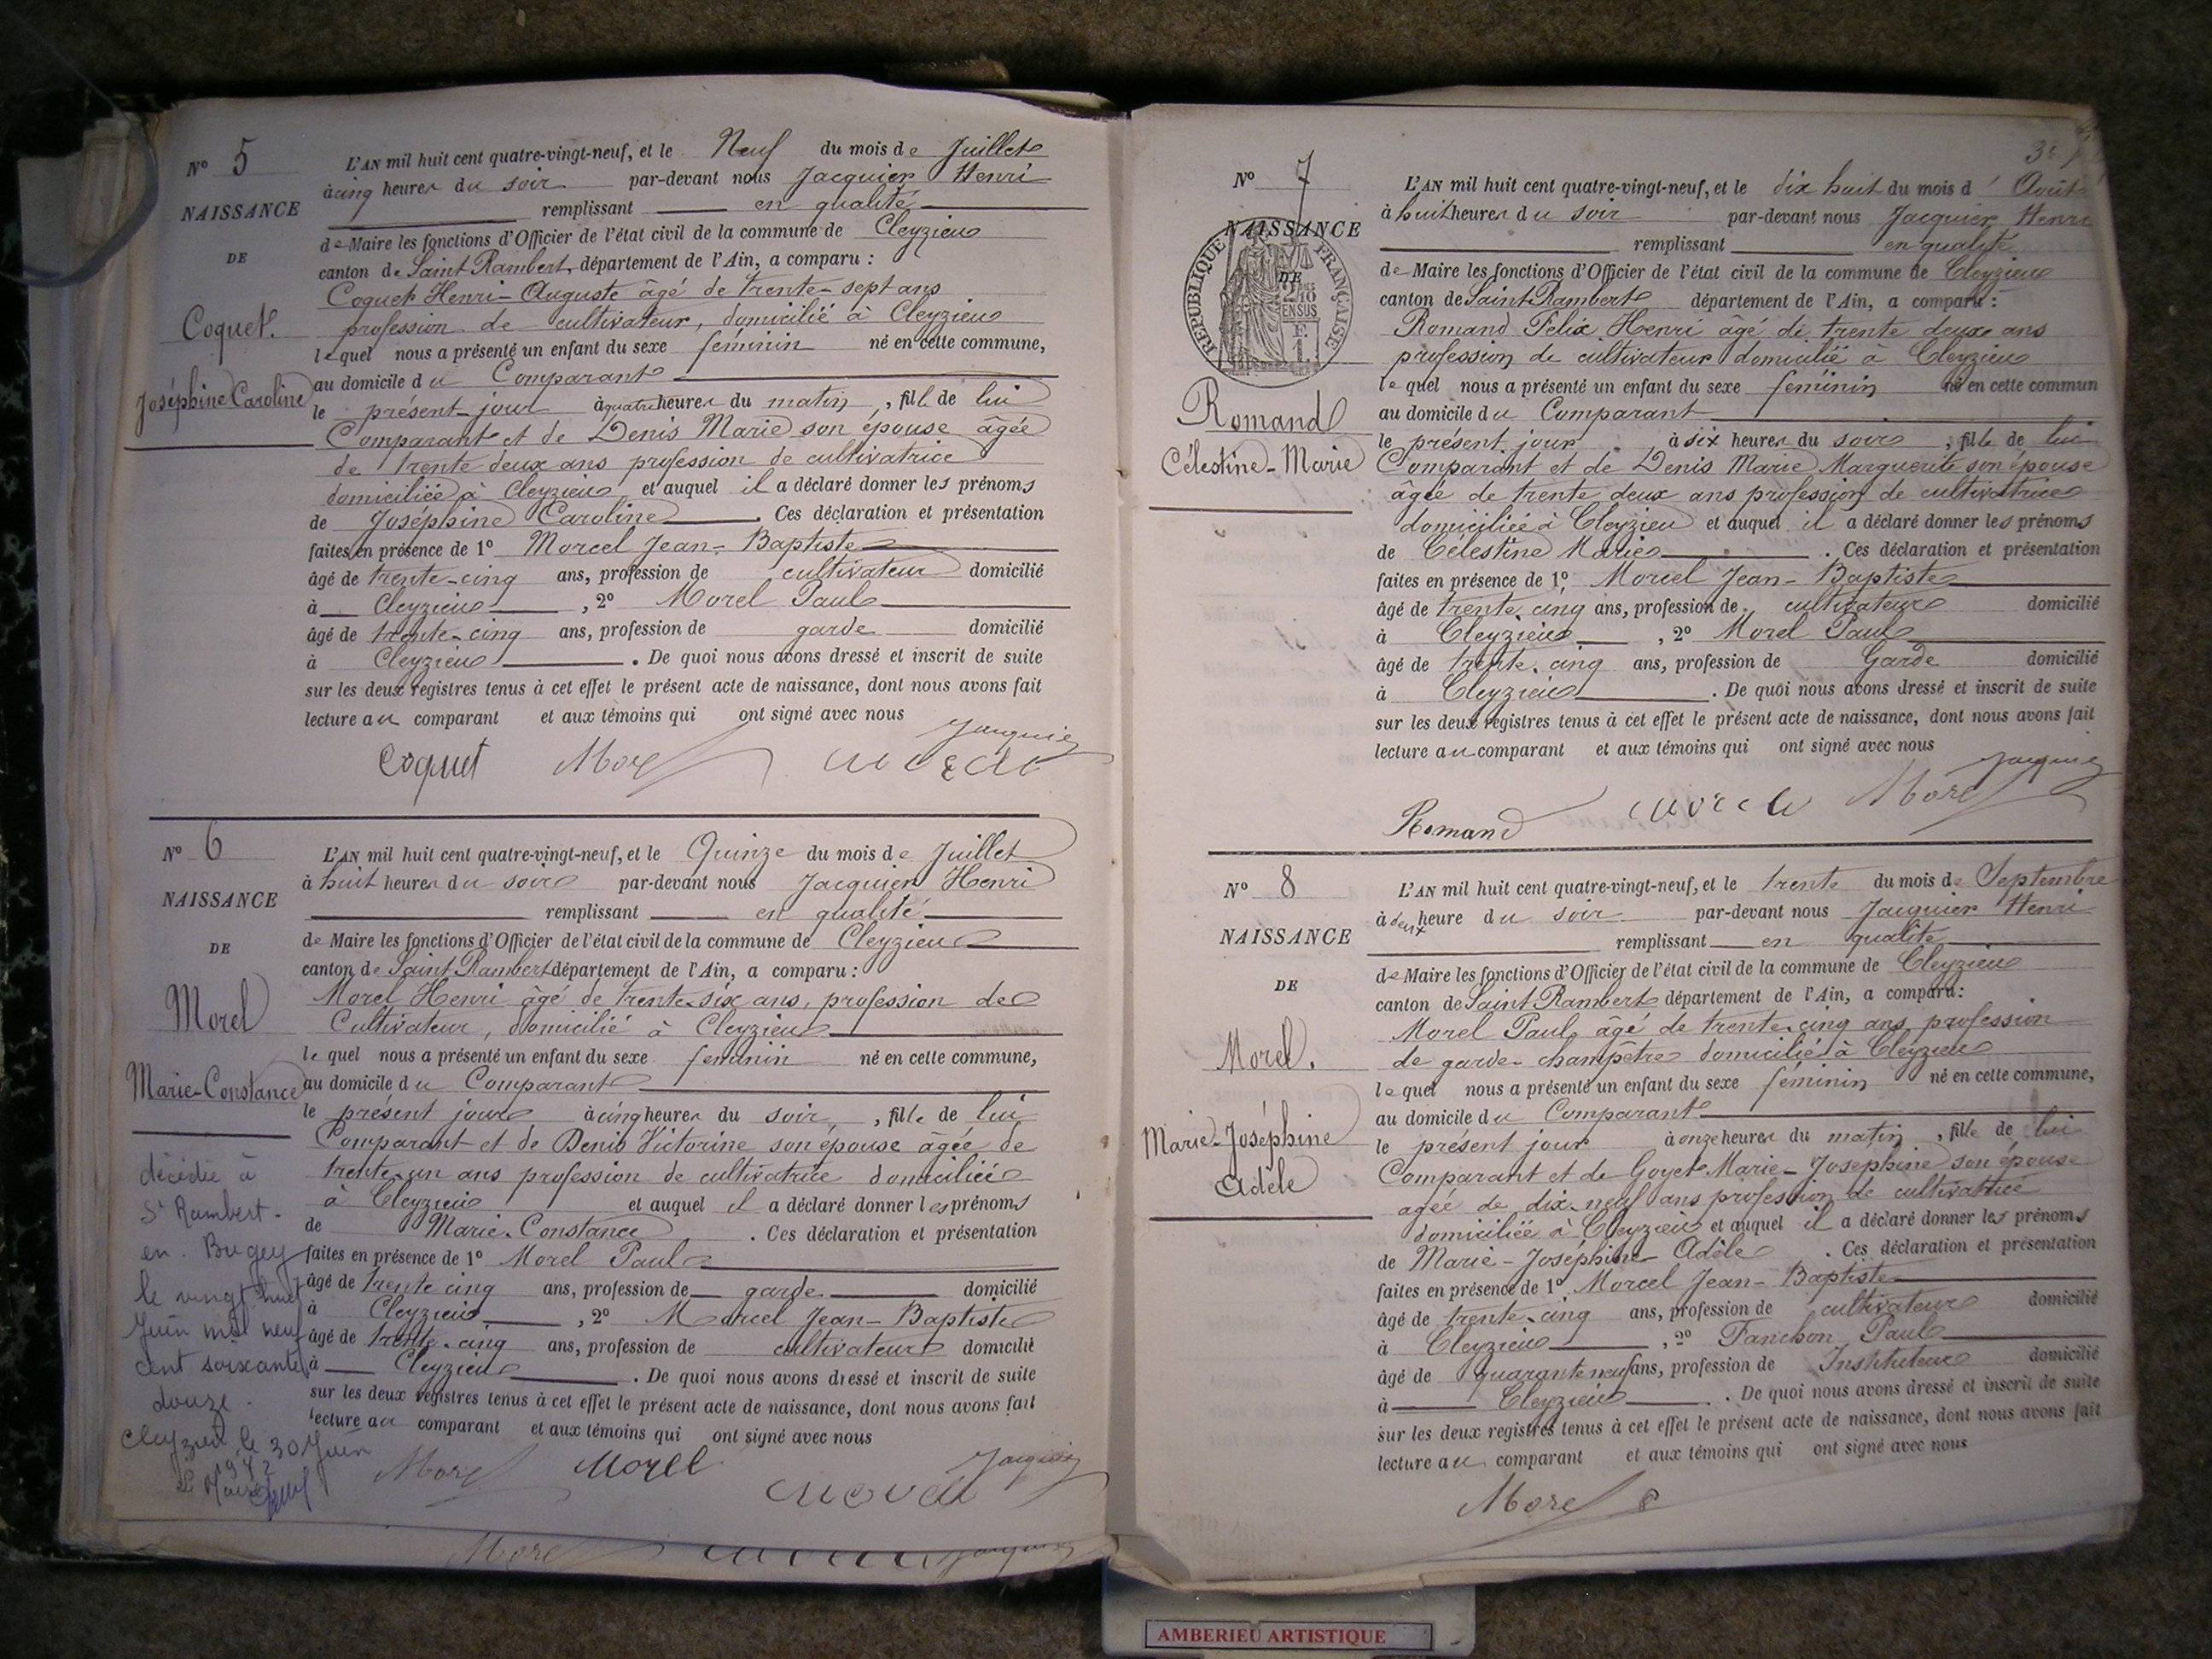 N° 5
NAISSANCE
DE
Coquet.
Joséphine Caroline
L'AN mil huit cent quatre-vingt-neuf, et le Neuf du mois de Juillet
à cinq heures du soir par-devant nous Jacquier Henri
remplissant en qualité
de Maire les fonctions d'Officier de l'état civil de la commune de Cleyzieu
canton de Saint Rambert, département de l'Ain, a comparu :
Coquet Henri-Auguste âgé de trente-sept ans
profession de cultivateur, domicilié à Cleyzieu
lequel nous a présenté un enfant du sexe féminin né en cette commune,
au domicile du Comparant
le présent jour à quatre heures du matin, fille de lui
Comparant et de Denis Marie son épouse âgée
de trente deux ans profession de cultivatrice
domiciliée à Cleyzieu et auquel il a déclaré donner les prénoms
de Joséphine Caroline . Ces déclaration et présentation
faites en présence de 1° Morcel Jean-Baptiste
âgé de trente-cinq ans, profession de cultivateur domicilié
à Cleyzieu , 2° Morel Paul
âgé de trente-cinq ans, profession de garde domicilié
à Cleyzieu . De quoi nous avons dressé et inscrit de suite
sur les deux registres tenus à cet effet le présent acte de naissance, dont nous avons fait
lecture au comparant et aux témoins qui ont signé avec nous
Jacquier
Coquet Morel
N° 6
NAISSANCE
DE
Morel
Marie-Constance
décédée à
St Rambert-
en-Bugey
le vingt huit
Juin mil neuf
cent soixante
douze.
Cleyzieu le 30 Juin
1972
Le Maire
L'AN mil huit cent quatre-vingt-neuf, et le Quinze du mois de Juillet
à huit heures du soir par-devant nous Jacquier Henri
remplissant en qualité
de Maire les fonctions d'Officier de l'état civil de la commune de Cleyzieu
canton de Saint Rambert département de l'Ain, a comparu :
Morel Henri âgé de trente-six ans, profession de
Cultivateur, domicilié à Cleyzieu
lequel nous a présenté un enfant du sexe féminin né en cette commune,
au domicile du Comparant
le présent jour à cinq heures du soir, fille de lui
Comparant et de Denis Victorine son épouse âgée de
trente-un ans profession de cultivatrice domiciliée
à Cleyzieu et auquel il a déclaré donner les prénoms
de Marie-Constance . Ces déclaration et présentation
faites en présence de 1° Morel Paul
âgé de trente cinq ans, profession de garde domicilié
à Cleyzieu , 2° Morcel Jean-Baptiste
âgé de trente-cinq ans, profession de cultivateur domicilié
à Cleyzieu . De quoi nous avons dressé et inscrit de suite
sur les deux registres tenus à cet effet le présent acte de naissance, dont nous avons fait
lecture au comparant et aux témoins qui ont signé avec nous
Morel Morel Jacquier
Morel
N° 7
NAISSANCE
DE
RÉPUBLIQUE FRANÇAISE
2/10 EN SUS
F. 1.
Romand
Célestine-Marie
L'AN mil huit cent quatre-vingt-neuf, et le dix huit du mois d'Août
à huit heures du soir par-devant nous Jacquier Henri
remplissant en qualité
de Maire les fonctions d'Officier de l'état civil de la commune de Cleyzieu
canton de Saint Rambert département de l'Ain, a comparu :
Romand Félix Henri âgé de trente deux ans
profession de cultivateur domicilié à Cleyzieu
lequel nous a présenté un enfant du sexe féminin né en cette commun
au domicile du Comparant
le présent jour à six heures du soir, fille de lui
Comparant et de Denis Marie Marguerite son épouse
âgée de trente deux ans profession de cultivatrice
domiciliée à Cleyzieu et auquel il a déclaré donner les prénoms
de Célestine Marie . Ces déclaration et présentation
faites en présence de 1° Morcel Jean-Baptiste
âgé de trente cinq ans, profession de cultivateur domicilié
à Cleyzieu , 2° Morel Paul
âgé de trente-cinq ans, profession de Garde domicilié
à Cleyzieu . De quoi nous avons dressé et inscrit de suite
sur les deux registres tenus à cet effet le présent acte de naissance, dont nous avons fait
lecture au comparant et aux témoins qui ont signé avec nous
Jacquier
Romand Morcel Morel
N° 8
NAISSANCE
DE
Morel.
Marie-Joséphine
Adèle
L'AN mil huit cent quatre-vingt-neuf, et le trente du mois de Septembre
à deux heure du soir par-devant nous Jacquier Henri
remplissant en qualité
de Maire les fonctions d'Officier de l'état civil de la commune de Cleyzieu
canton de Saint Rambert département de l'Ain, a comparu :
Morel Paul, âgé de trente-cinq ans profession
de garde-champêtre domicilié à Cleyzieu
lequel nous a présenté un enfant du sexe féminin né en cette commune,
au domicile du Comparant
le présent jour à onze heures du matin, fille de lui
Comparant et de Goyet Marie-Josephine son épouse
agée de dix-neuf ans profession de cultivatrice
domiciliée à Cleyzieu et auquel il a déclaré donner les prénoms
de Marie-Joséphine Adèle . Ces déclaration et présentation
faites en présence de 1° Morcel Jean-Baptiste
âgé de trente-cinq ans, profession de cultivateur domicilié
à Cleyzieu , 2° Fanchon Paul
âgé de quarante neuf ans, profession de Instituteur domicilié
à Cleyzieu . De quoi nous avons dressé et inscrit de suite
sur les deux registres tenus à cet effet le présent acte de naissance, dont nous avons fait
lecture au comparant et aux témoins qui ont signé avec nous
Morel
AMBERIEU ARTISTIQUE